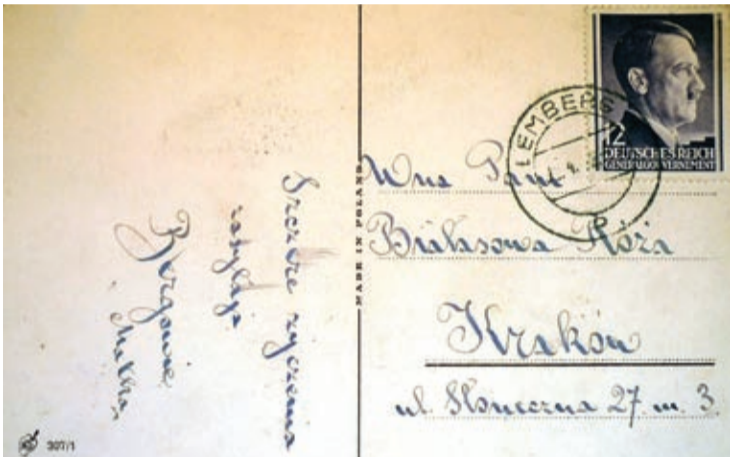 Szczere życzenia
zasyłają
MADE IN POLAND
307/1
LEMBERG
12
DEUTSCHES REICH
GENERALGOUVERNEMENT
Wna Pani
Białasowa Róża
Kraków
ul. Słoneczna 27. m. 3.